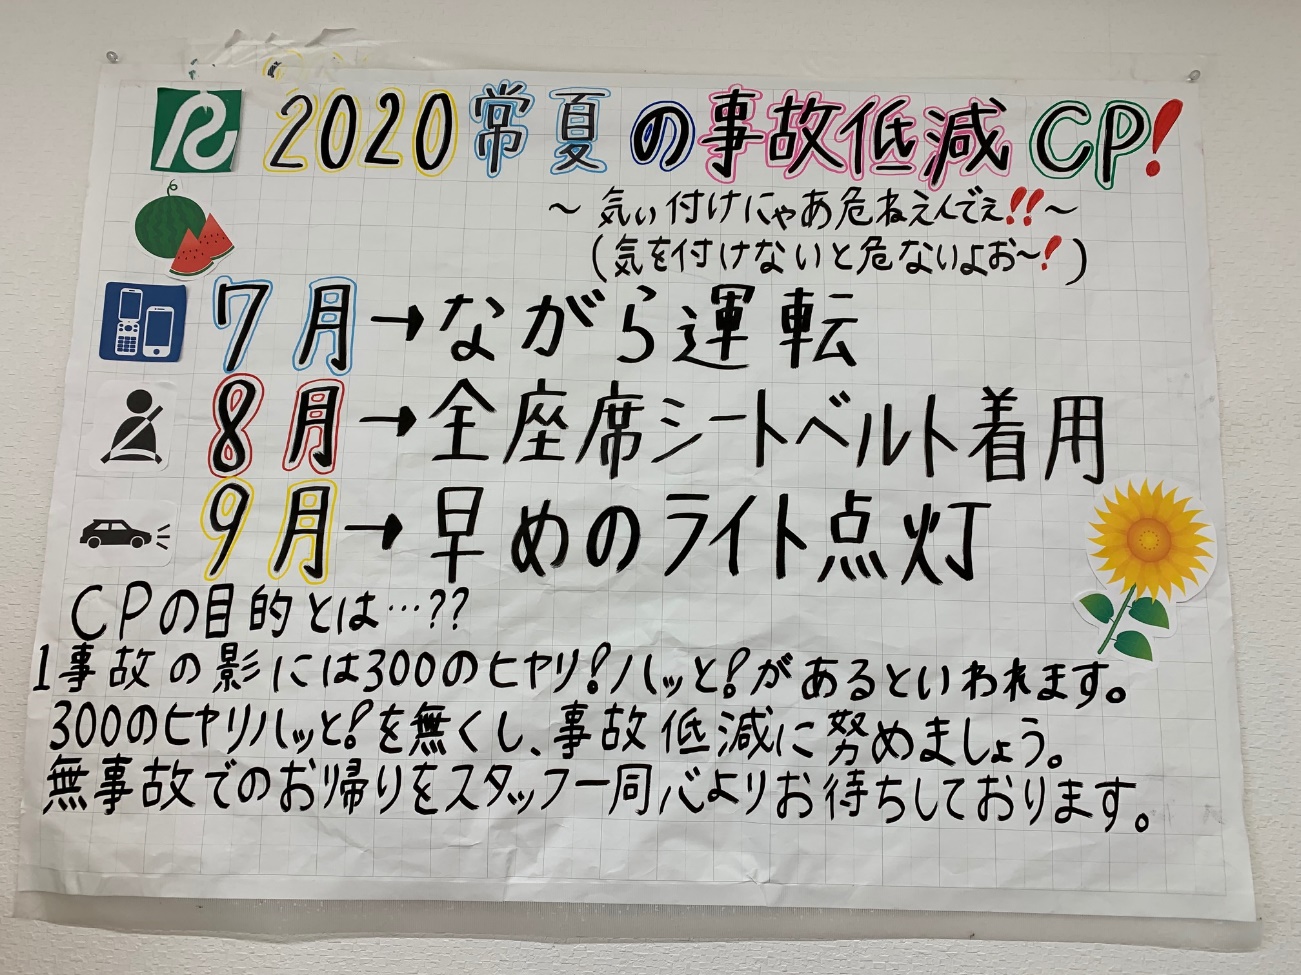 2020常夏の事故低減CP!
～気ぃ付けにゃあ危ねえんでぇ!!～
(気を付けないと危ないよお～!)
7月→ながら運転
8月→全座席シートベルト着用
9月→早めのライト点灯
CPの目的とは…??
1事故の影には300のヒヤリ!ハッと!があるといわれます。
300のヒヤリハッと!を無くし、事故低減に努めましょう。
無事故でのお帰りをスタッフ一同心よりお待ちしております。